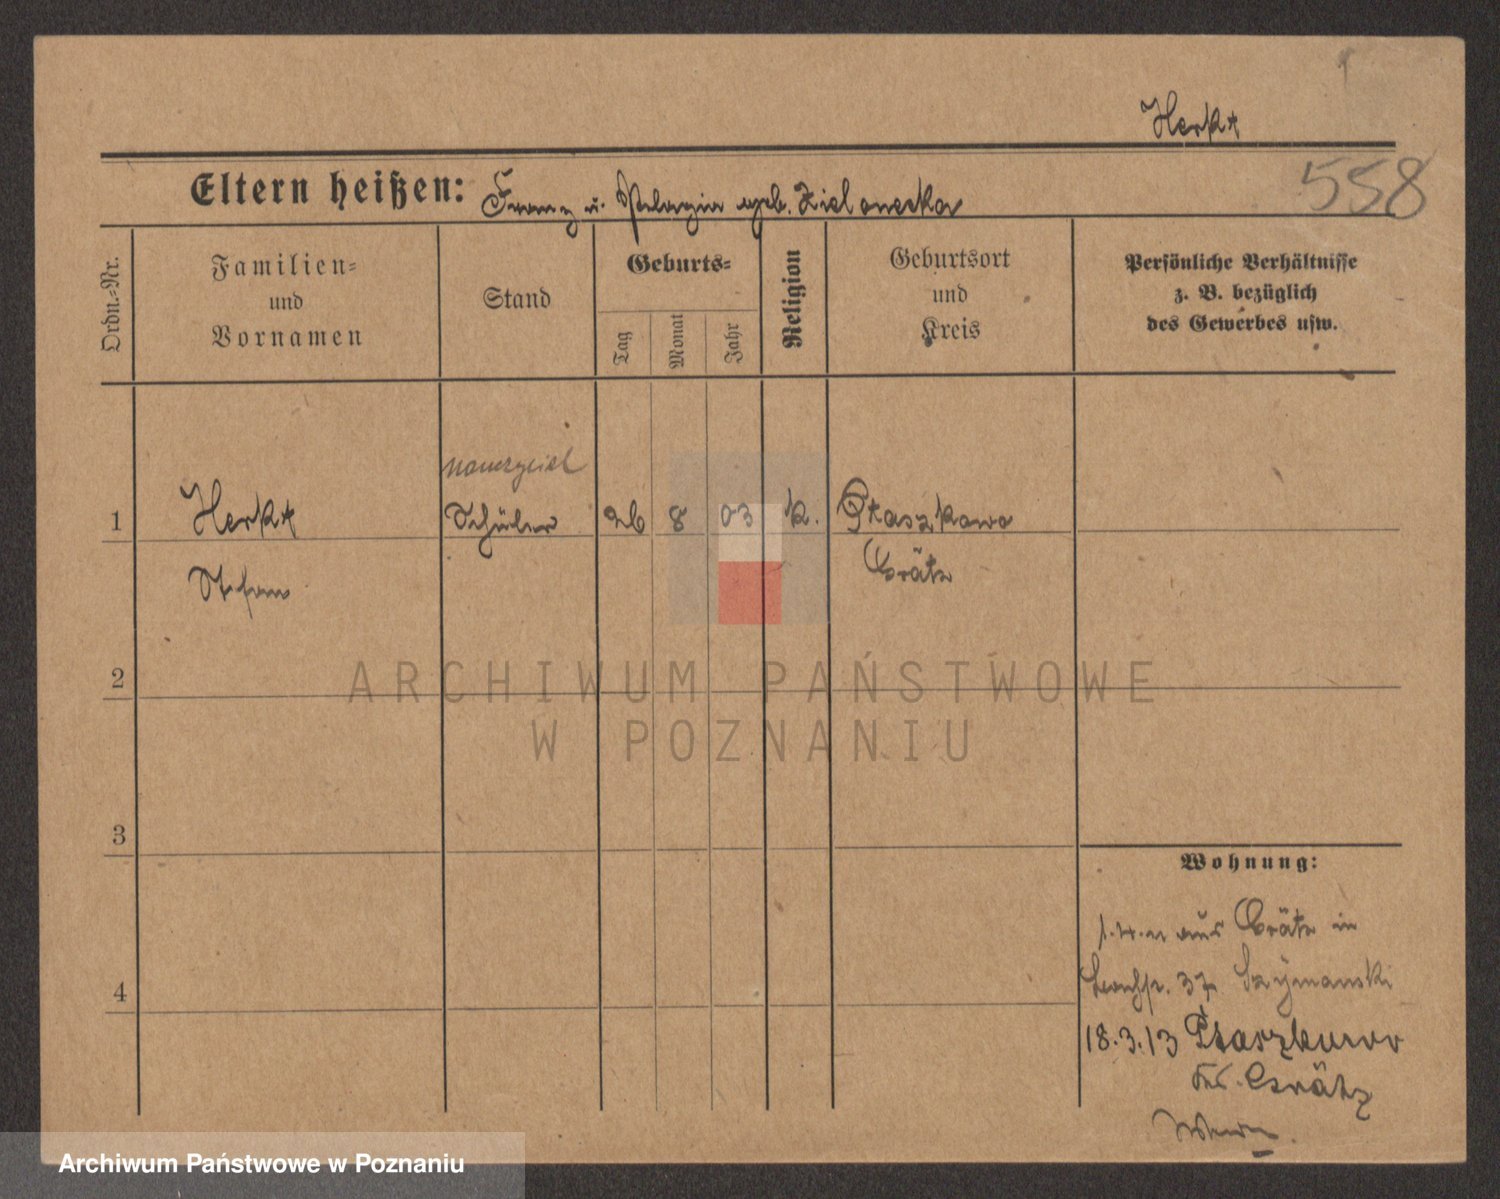 Herkt
558
Eltern heißen: Franz u. Pelagia geb. Zielonecka
Ordn.-Nr.
Familien-
und
Vornamen
Stand
Geburts-
Tag
Monat
Jahr
Religion
Geburtsort
und
Kreis
Persönliche Verhältnisse
z. B. bezüglich
des Gewerbes usw.
1
Herkt
Schüler
26
8
03
k.
Ptaszkowo
Grätz
Stefan
2
ARCHIWUM PAŃSTWOWE
W POZNANIU
3
Wohnung:
aus Grätz in
37 Szymanski
4
18.3.13 Ptaszkowo
Grätz
Archiwum Państwowe w Poznaniu